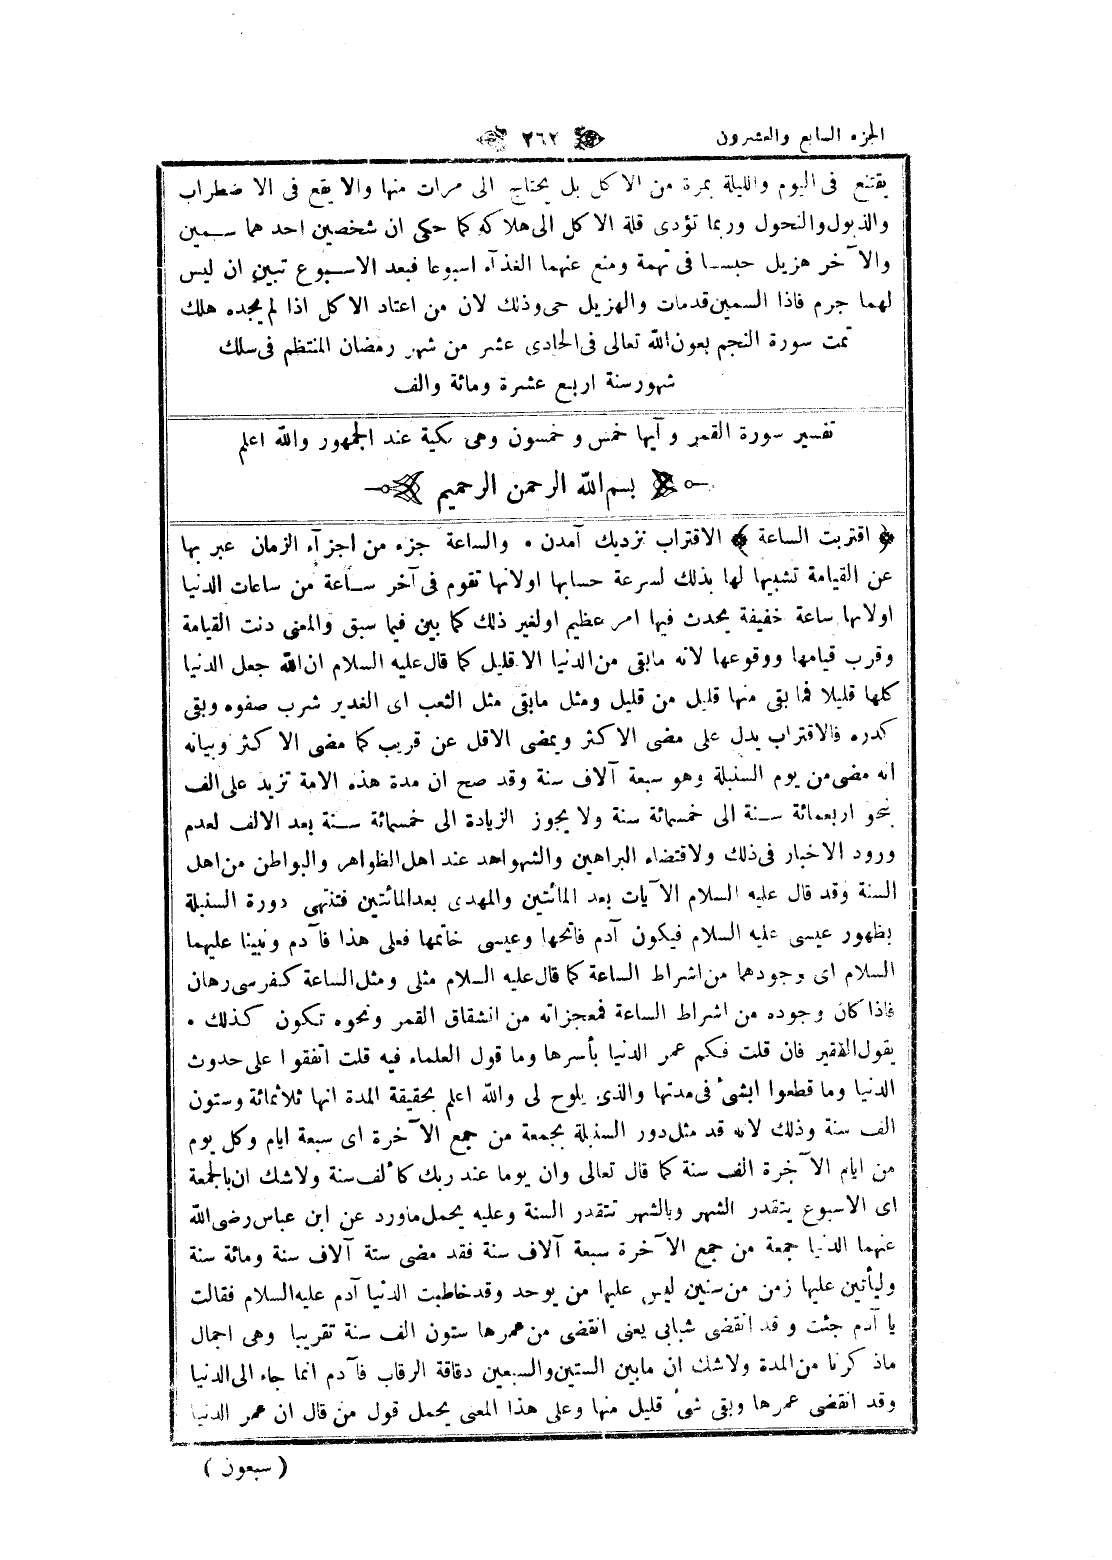 الجزء السابع والعشرون
٢٦٢
يقتنع فى اليوم والليلة بمرة من الاكل بل يحتاج الى مرات منها والا يقع فى الا ضطراب
والذبول والنحول وربما تؤدى قلة الاكل الى هلاكه كما حكى ان شخصين احد هما سمين
والآخر هزيل حبسا فى تهمة ومنع عنهما الغذآء اسبوعا فبعد الاسبوع تبين ان ليس
لهما جرم فاذا السمين قدمات والهزيل حى وذلك لان من اعتاد الاكل اذا لم يجده هلك
تمت سورة النجم بعون الله تعالى فى الحادى عشر من شهر رمضان المنتظم فى سلك
شهور سنة اربع عشرة ومائة والف
تفسير سورة القمر وآيها خمس و خمسون وهى مكية عند الجمهور والله اعلم
بسم الله الرحمن الرحيم
﴿ اقتربت الساعة ﴾ الاقتراب نزديك آمدن • والساعة جزء من اجزآء الزمان عبر بها
عن القيامة تشبيها لها بذلك لسرعة حسابها اولانها تقوم فى آخر ساعة من ساعات الدنيا
اولانها ساعة خفيفة يحدث فيها امر عظيم اولغير ذلك كما بين فيما سبق والمعنى دنت القيامة
وقرب قيامها ووقوعها لانه مابقى من الدنيا الا قليل كما قال عليه السلام ان الله جعل الدنيا
كلها قليلا فما بقى منها قليل من قليل ومثل مابقى مثل الثعب اى الغدير شرب صفوه وبقى
كدره فالاقتراب يدل على مضى الاكثر ويمضى الاقل عن قريب كما مضى الاكثر وبيانه
انه مضى من يوم السنبلة وهو سبعة آلاف سنة وقد صح ان مدة هذه الامة تزيد على الف
بنحو اربعمائة سنة الى خمسمائة سنة ولا يجوز الزيادة الى خمسمائة سنة بعد الالف لعدم
ورود الاخبار فى ذلك ولاقتضاء البراهين والشهواهد عند اهل الظواهر والبواطن من اهل
السنة وقد قال عليه السلام الآيات بعد المائتين والمهدى بعد المائتين فتنتهى دورة السنبلة
بظهور عيسى عليه السلام فيكون آدم فاتحها وعيسى خاتمها فعلى هذا فآدم ونبينا عليهما
السلام اى وجودهما من اشراط الساعة كما قال عليه السلام مثلى ومثل الساعة كفرسى رهان
فاذا كان وجوده من اشراط الساعة فمعجزاته من انشقاق القمر ونحوه تكون كذلك •
يقول الفقير فان قلت فكم عمر الدنيا بأسرها وما قول العلماء فيه قلت اتفقوا على حدوث
الدنيا وما قطعوا ابشئ فى مدتها والذى يلوح لى والله اعلم بحقيقة المدة انها ثلاثمائة وستون
الف سنة وذلك لانه قد مثل دور السنبلة بجمعة من جمع الآخرة اى سبعة ايام وكل يوم
من ايام الآخرة الف سنة كما قال تعالى وان يوما عند ربك كألف سنة ولاشك ان بالجمعة
اى الاسبوع يتقدر الشهر وبالشهر تتقدر السنة وعليه يحمل ماورد عن ابن عباس رضى الله
عنهما الدنيا جمعة من جمع الآخرة سبعة آلاف سنة فقد مضى ستة آلاف سنة ومائة سنة
وليأتين عليها زمن من سنين ليس عليها من يوحد وقد خاطبت الدنيا آدم عليه السلام فقالت
يا آدم جئت و قد انقضى شبابى يعنى انقضى من عمرها ستون الف سنة تقريبا وهى اجمال
ماذ كرنا من المدة ولاشك ان مابين الستين والسبعين دقاقة الرقاب فآدم انما جاء الى الدنيا
وقد انقضى عمرها وبقى شئ قليل منها وعلى هذا المعنى يحمل قول من قال ان عمر الدنيا
( سبعون )